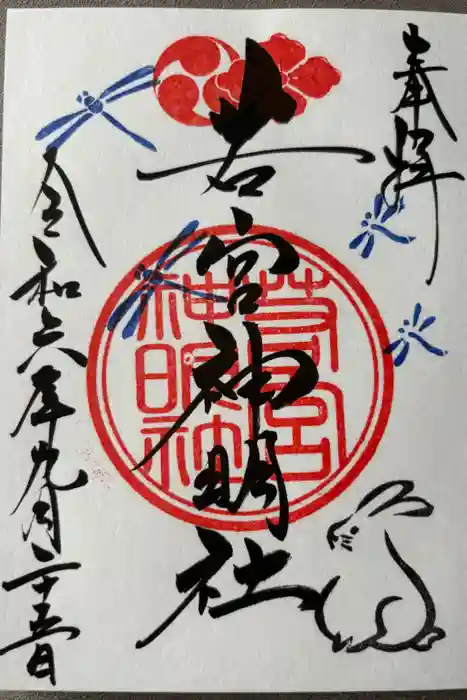 奉拝
若宮神明社
令和六年九月二十五日
若宮